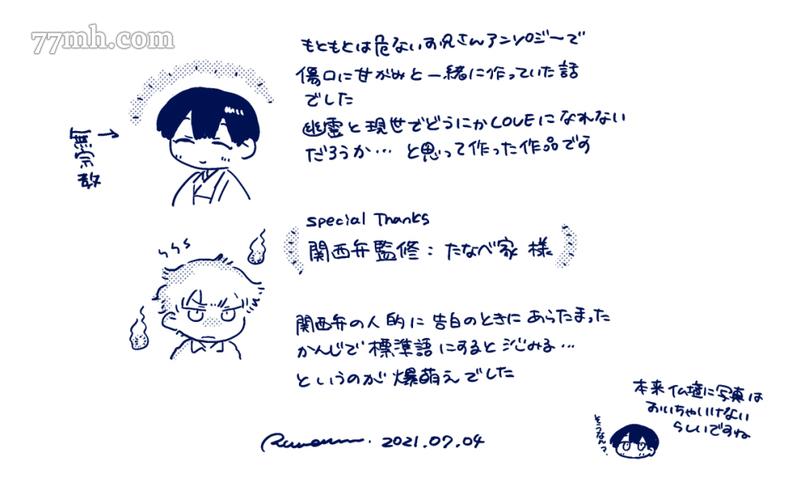 77mh.com
もともとは危ないお兄さんアンソロジーで
傷口に甘がみと一緒に作っていた話
でした
幽霊と現世でどうにかLOVEになれない
だろうか… と思って作った作品です
無宗教
special Thanks
関西弁監修：たなべ家 様
うらら
関西弁の人的に 告白のときに あらたまった
かんじで 標準語にすると 沁みる…
というのが 爆萌えでした
2021.07.04
本来 仏壇に写真は
おいちゃいけない
らしいですね
そうなん?